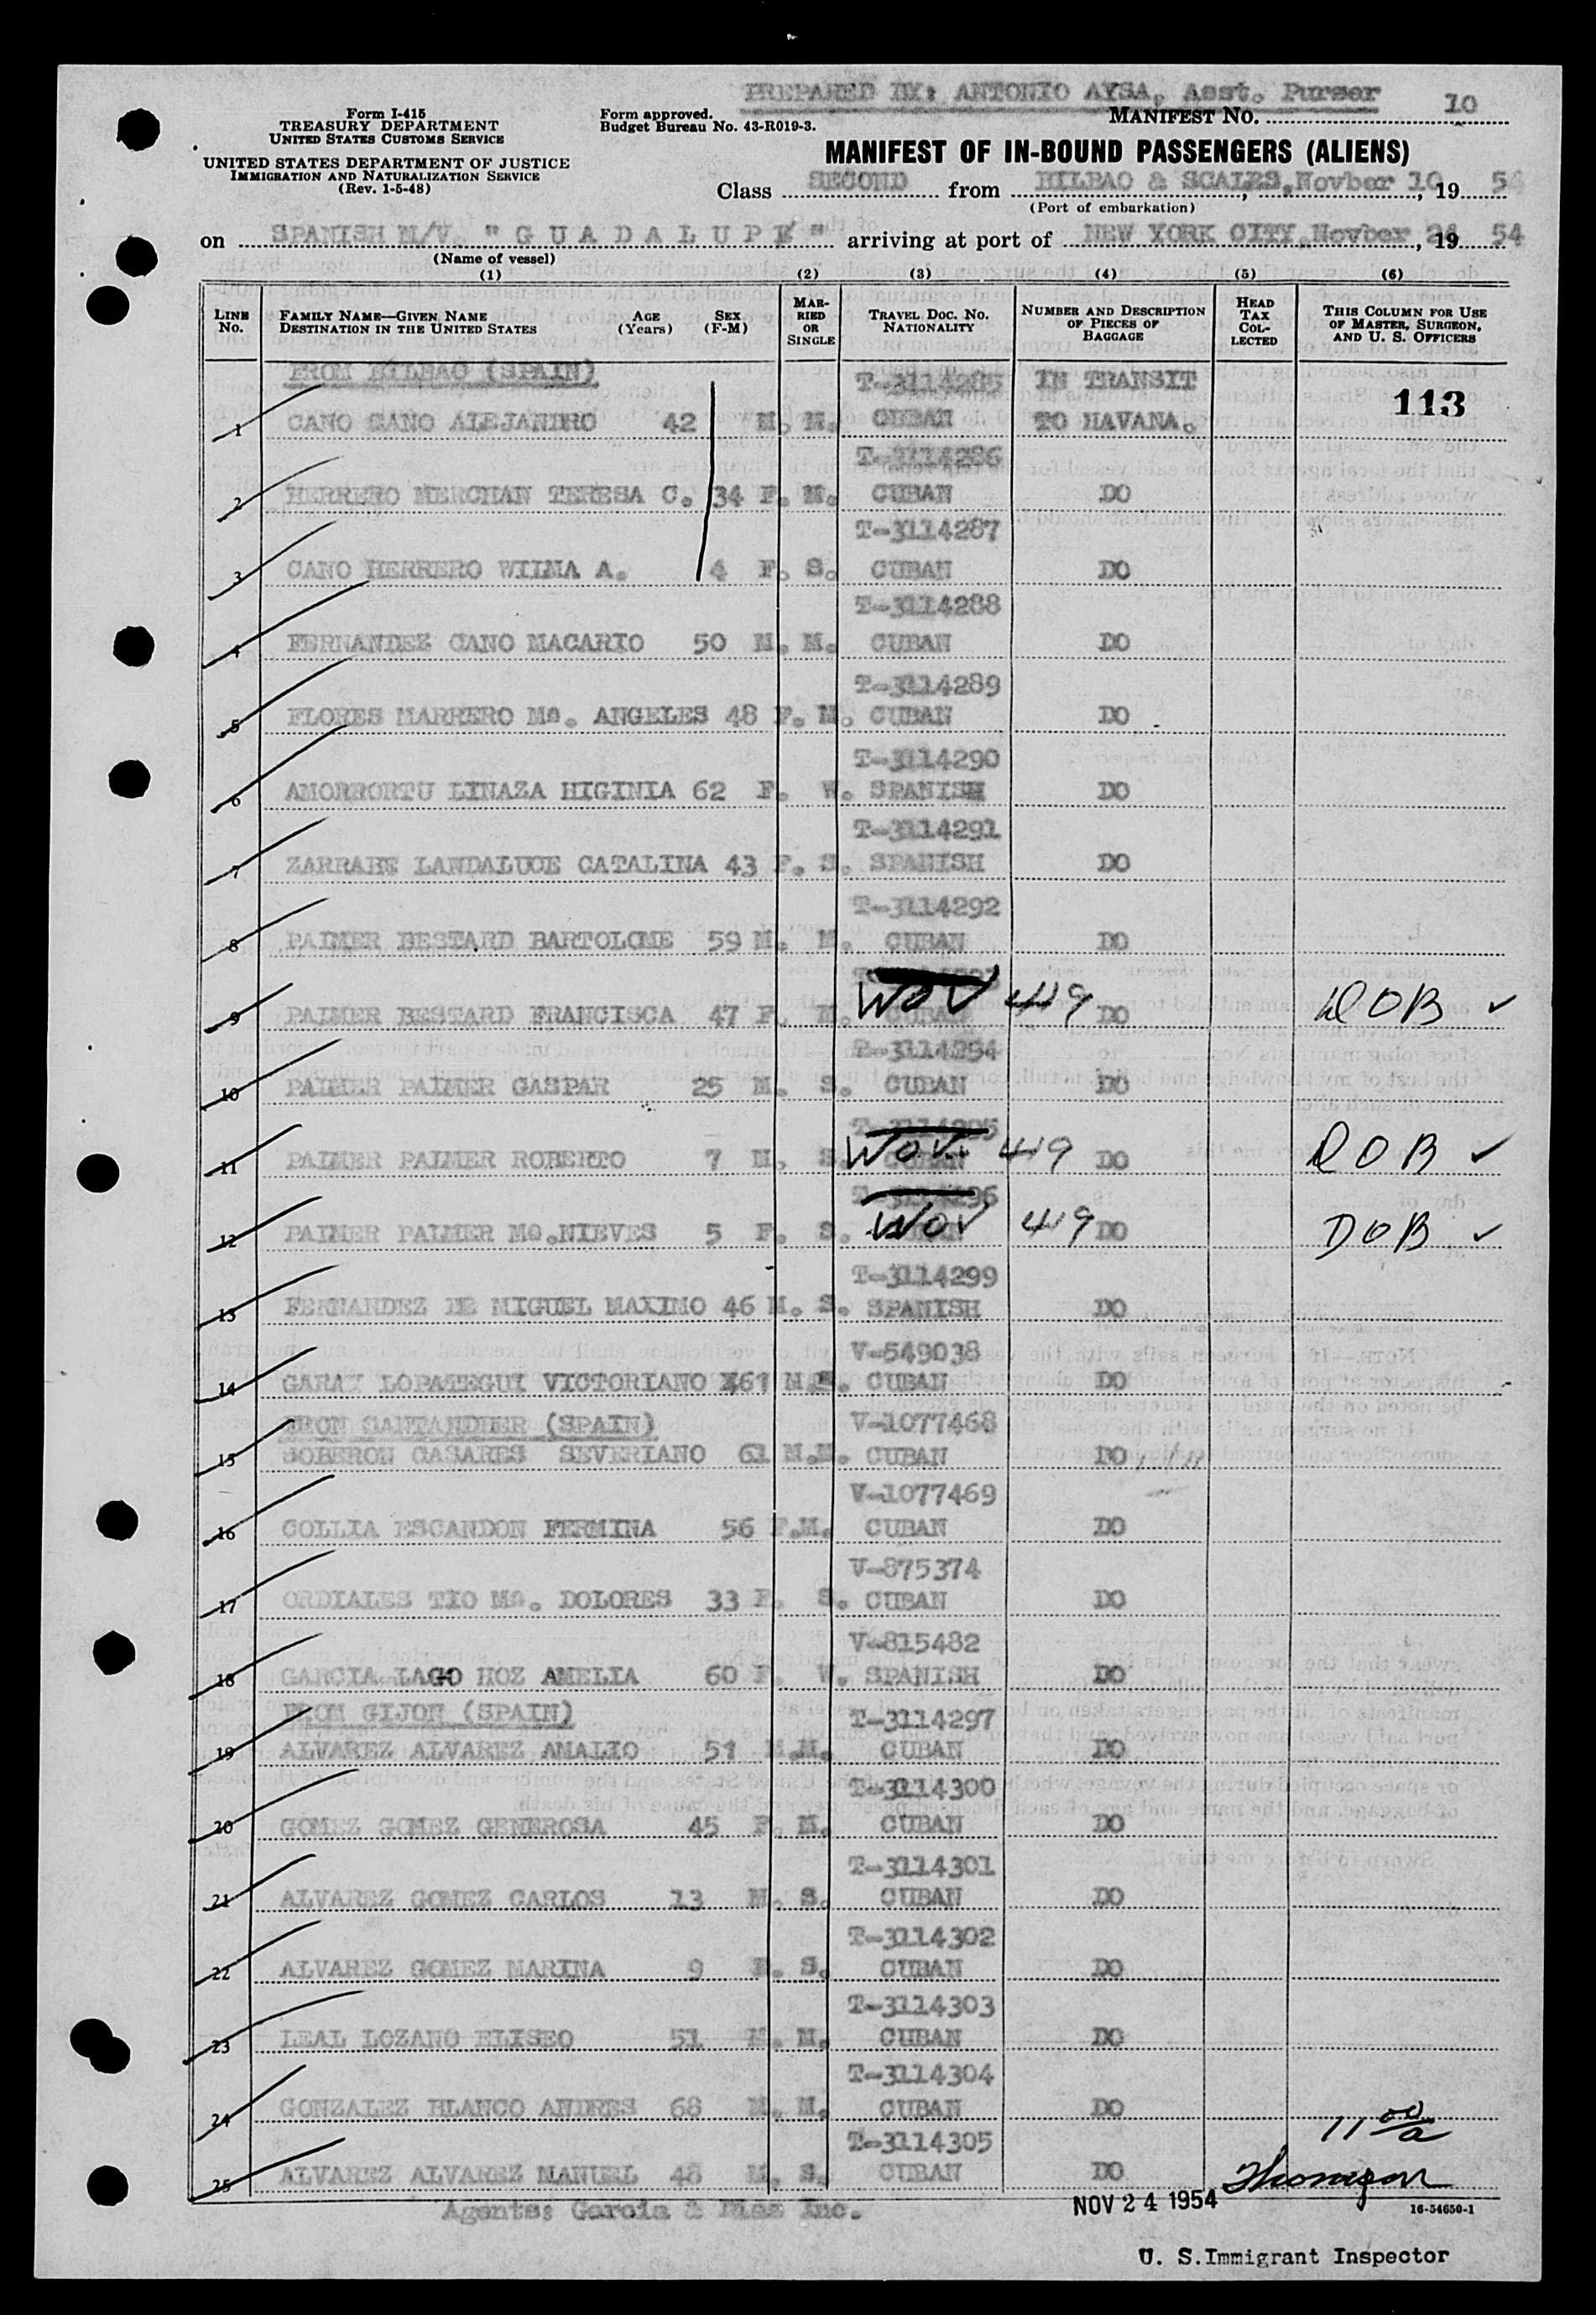 PREPARED BY: ANTONIO AYSA, Asst. Purser
Form I-415
TREASURY DEPARTMENT
UNITED STATES CUSTOMS SERVICE
UNITED STATES DEPARTMENT OF JUSTICE
IMMIGRATION AND NATURALIZATION SERVICE
(Rev. 1-5-48)
Form approved.
Budget Bureau No. 43-R019-3.
MANIFEST NO. 10
MANIFEST OF IN-BOUND PASSENGERS (ALIENS)
Class SECOND from BILBAO & SCALES, Novber 10, 19 54
(Port of embarkation)
on SPANISH M/V. "GUADALUPE" arriving at port of NEW YORK CITY, Novber 24, 19 54
(Name of vessel)
(1) (2) (3) (4) (5) (6)
LINE NO. FAMILY NAME—GIVEN NAME DESTINATION IN THE UNITED STATES AGE (Years) SEX (F-M) MARRIED OR SINGLE TRAVEL DOC. NO. NATIONALITY NUMBER AND DESCRIPTION OF PIECES OF BAGGAGE HEAD TAX COLLECTED THIS COLUMN FOR USE OF MASTER, SURGEON, AND U. S. OFFICERS
FROM BILBAO (SPAIN) T-3114285 IN TRANSIT 113
1 CANO CANO ALEJANDRO 42 M. M. CUBAN TO HAVANA.
T-3114286
2 HERRERO MERCHAN TERESA C. 34 F. M. CUBAN DO
T-3114287
3 CANO HERRERO WILMA A. 4 F. S. CUBAN DO
T-3114288
4 FERNANDEZ CANO MACARIO 50 M. M. CUBAN DO
T-3114289
5 FLORES MARRERO Ma. ANGELES 48 F. M. CUBAN DO
T-3114290
6 AMORRORTU LINAZA HIGINIA 62 F. W. SPANISH DO
T-3114291
7 ZARRABE LANDALUCE CATALINA 43 F. S. SPANISH DO
T-3114292
8 PALMER BESTARD BARTOLOME 59 M. M. CUBAN DO
9 PALMER BESTARD FRANCISCA 47 F. M. WOV 419 DO DOB ✓
T-3114294
10 PALMER PALMER GASPAR 25 M. S. CUBAN DO
T-3114295
11 PALMER PALMER ROBERTO 7 M. S. WOV. 419 DO DOB ✓
T-3114296
12 PALMER PALMER Ma.NIEVES 5 F. S. WOV 419 DO DOB ✓
T-3114299
13 FERNANDEZ DE MIGUEL MAXIMO 46 M. S. SPANISH DO
V-549038
14 GARAY LOPATEGUI VICTORIANO 61 M.S. CUBAN DO
FROM SANTANDER (SPAIN) V-1077468
15 SOBERON CASARES SEVERIANO 61 M.M. CUBAN DO
V-1077469
16 COLLIA ESCANDON FERMINA 56 F.M. CUBAN DO
V-875374
17 ORDIALES TIO Ma. DOLORES 33 F. S. CUBAN DO
V-815482
18 GARCIA LAGO HOZ AMELIA 60 F. W. SPANISH DO
FROM GIJON (SPAIN) T-3114297
19 ALVAREZ ALVAREZ AMALIO 51 M.M. CUBAN DO
T-3114300
20 GOMEZ GOMEZ GENEROSA 45 F. M. CUBAN DO
T-3114301
21 ALVAREZ GOMEZ CARLOS 13 M. S. CUBAN DO
T-3114302
22 ALVAREZ GOMEZ MARINA 9 F. S. CUBAN DO
T-3114303
23 LEAL LOZANO ELISEO 51 M. M. CUBAN DO
T-3114304
24 GONZALEZ BLANCO ANDRES 68 M. M. CUBAN DO
T-3114305 11 00/a
25 ALVAREZ ALVAREZ MANUEL 48 M. S. CUBAN DO Thompson
Agents: Garcia & Diaz Inc. NOV 24 1954 16-54650-1
U. S. Immigrant Inspector